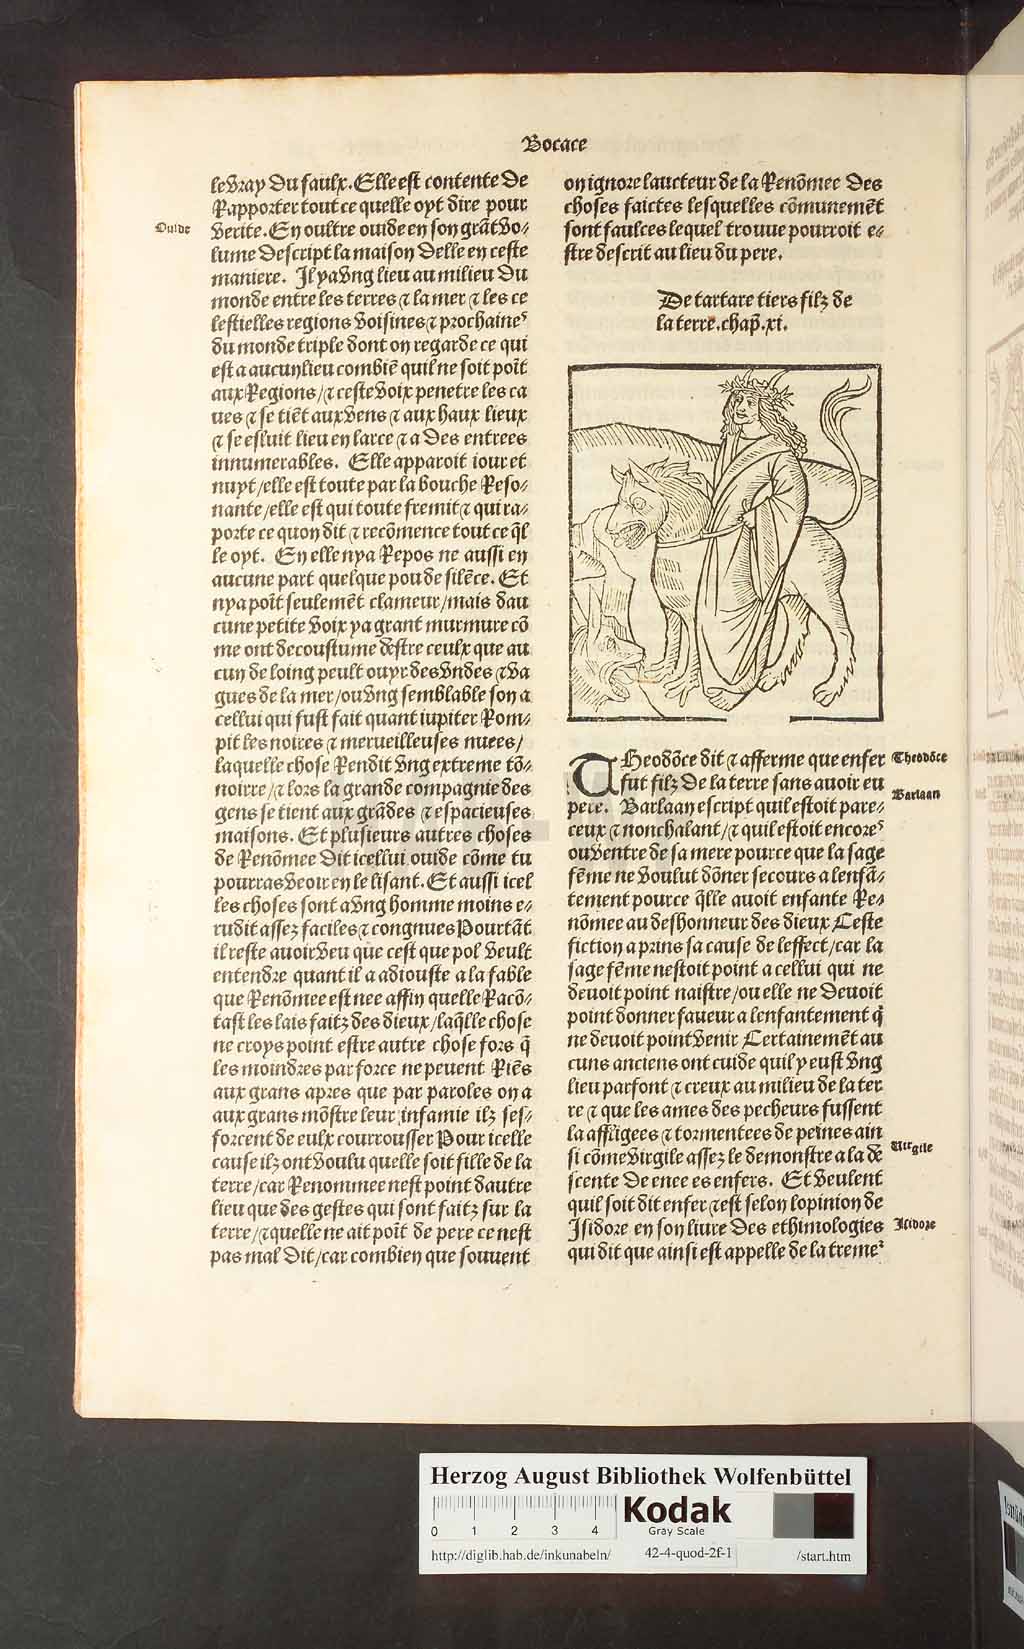 Bocace
le vray du faulx. Elle est contente de
Rapporter tout ce quelle oyt dire pour
Ouide
verite. En oultre ouide en son grãt vo⸗
lume descript la maison delle en ceste
maniere. Il ya vng lieu au milieu du
monde entre les terres ⁊ la mer ⁊ les ce
lestielles regions voisines ⁊ prochaines
du monde triple dont on regarde ce qui
est a aucun lieu combiẽ quil ne soit poĩt
aux Regions/⁊ ceste voix penetre les ca
ues ⁊ se tiẽt aux vens ⁊ aux haux lieux
⁊ se esluit lieu en larce ⁊ a des entrees
innumerables. Elle apparoit iour et
nuyt/elle est toute par la bouche Reso⸗
nante/elle est qui toute fremit ⁊ qui ra⸗
porte ce quon dit ⁊ recõmence tout ce q̃l
le oyt. En elle nya Repos ne aussi en
aucune part quelque pou de silẽce. Et
nya poĩt seulemẽt clameur/mais dau
cune petite voix ya grant murmure cõ
me ont decoustume destre ceulx que au
cun de loing peult ouyr des vndes ⁊ va
gues de la mer/ou vng semblable son a
cellui qui fust fait quant iupiter Rom⸗
pit les noires ⁊ merueilleuses nuees/
laquelle chose Rendit vng extreme tõ⸗
noirre/⁊ lors la grande compagnie des
gens se tient aux grãdes ⁊ espacieuses
maisons. Et plusieurs autres choses
de Renõmee dit icellui ouide cõme tu
pourras veoir en le lisant. Et aussi icel
les choses sont a vng homme moins e⸗
rudit assez faciles ⁊ congnues Pourtãt
il reste auoir veu que cest que pol veult
entendre quant il a adiouste a la fable
que Renõmee est nee affin quelle Racõ⸗
tast les lais faitz des dieux/laq̃lle chose
ne croys point estre autre chose fors q̃
les moindres par force ne peuent Riẽs
aux grans apres que par paroles on a
aux grans mõstre leur infamie ilz ses⸗
forcent de eulx courrousser Pour icelle
cause ilz ont voulu quelle soit fille de la
terre/car Renommee nest point dautre
lieu que des gestes qui sont faitz sur la
terre/⁊ quelle ne ait poĩt de pere ce nest
pas mal dit/car combien que souuent
on ignore laucteur de la Renõmee des
choses faictes lesquelles cõmunemẽt
sont faulces lequel trouue pourroit e⸗
stre descrit au lieu du pere.
De tartare tiers filz de
la terre. chap̃. xi.
THeodõce dit ⁊ afferme que enfer
Theodõce
fut filz de la terre sans auoir eu
pere. Barlaan escript quil estoit pare⸗
Barlaan
ceux ⁊ nonchalant/⁊ quil estoit encores
ou ventre de sa mere pource que la sage
fẽme ne voulut dõner secours a lenfã⸗
tement pource q̃lle auoit enfante Re⸗
nõmee au deshonneur des dieux Ceste
fiction a prins sa cause de leffect/car la
sage fẽme nestoit point a cellui qui ne
deuoit point naistre/ou elle ne deuoit
point donner faueur a lenfantement q̃
ne deuoit point venir Certainemẽt au
cuns anciens ont cuide quil y eust vng
lieu parfont ⁊ creux au milieu de la ter
re ⁊ que les ames des pecheurs fussent
la affligees ⁊ tormentees de peines ain
si cõme virgile assez le demonstre a la de
Virgile
scente de enee es enfers. Et veulent
quil soit dit enfer ⁊ est selon lopinion de
Isidore en son liure des ethimologies
Isidore
qui dit que ainsi est appelle de la treme²
Herzog August Bibliothek Wolfenbüttel
0 1 2 3 4
Kodak
Gray Scale
http://diglib.hab.de/inkunabeln/ 42-4-quod-2f-1 /start.htm